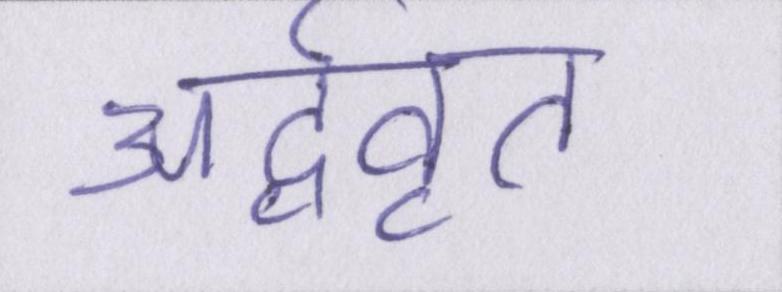 अर्द्ववृत